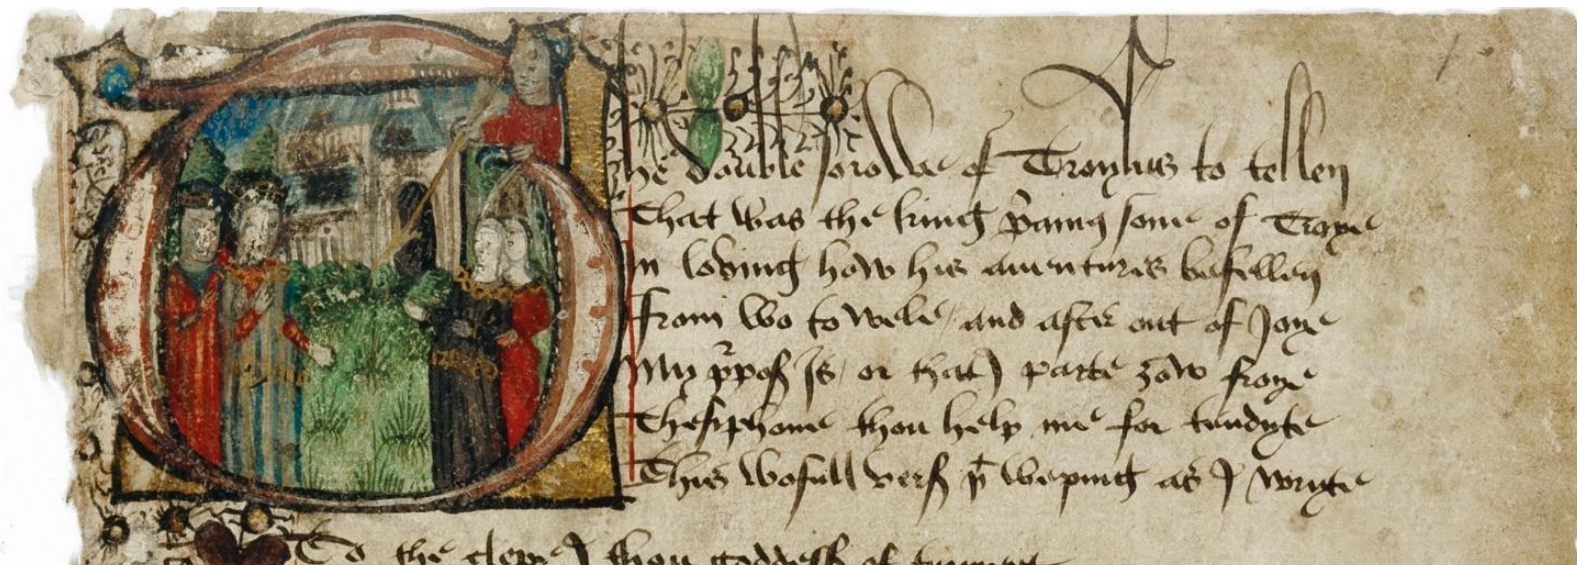 The double sorowe of Troylus to tellen
That was the king p̄amys sone of Troye
In loving how his auenturis befellen
From wo to wele / and after out of Joye
My p̄pos Is / or that I parte ȝow froye
Thesiphone thou help me for tendyte
This wofull vers þt weping as I wryte
To the clepe I thou goddess of turment